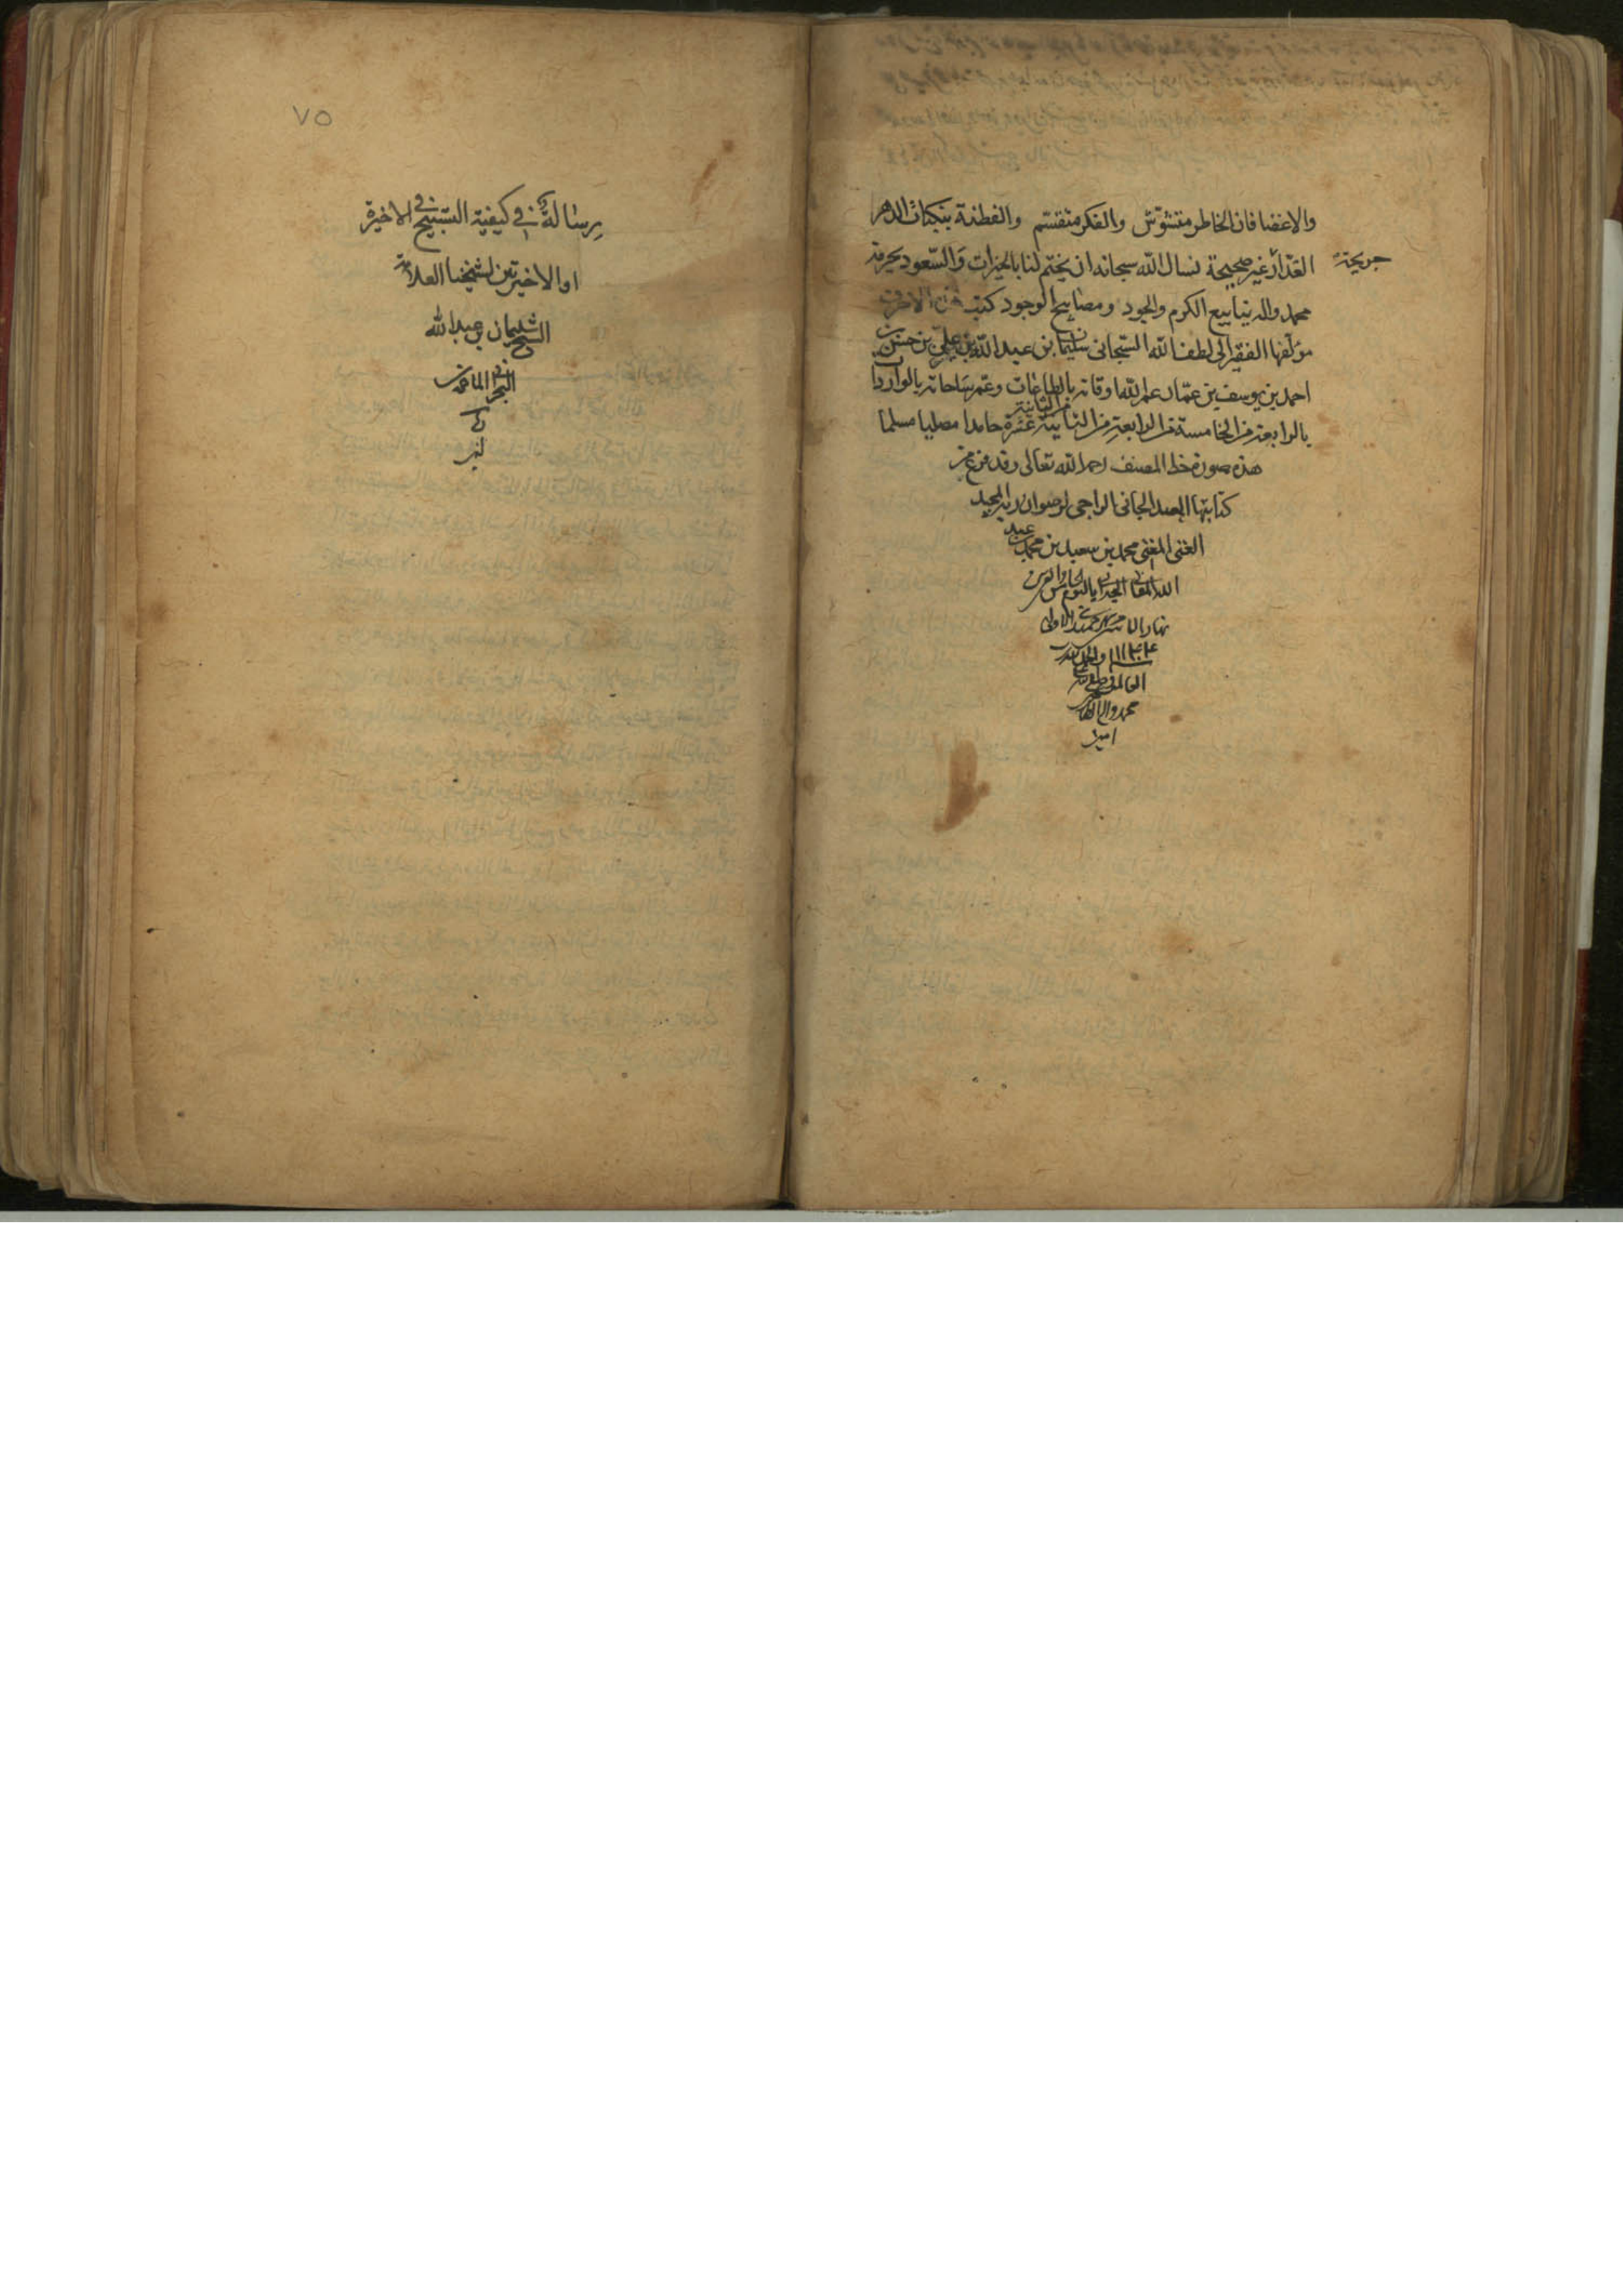 والاغضا فان الخاطر متشوّش والفكر منقسّم والفطنة بنكبات الدهر
جريحة
الغدار غير صحيحة نسال الله سبحانه ان يختم لنا بالخيرات والسّعود بحرمة
محمد واله ينابيع الكرم والجود ومصابيح الوجود كتب هذه الاحرف
مؤلفها الفقير الى لطف الله السبحانى سليمان بن عبد الله بن علي بن حسن بن
احمد بن يوسف بن عمّار عمر الله اوقاته بالطاعات وعمّر ساحاته بالواردات
بالرابعة من الخامسة من الرابعة من الثانية من الثانية عشرة حامدا مصليا مسلما
هذه صورة خط المصنف رحمه الله تعالى وقد فرغ من
كتابتها العبد الجانى الراجى لرضوان ربه المجيد
الغنى المغنى محمد بن سعيد بن محمد بن عبد
الله المقابى البحرانى باليوم الخامس والعشرين
نهار الاحد من شهر جمادى الاولى
سنة ١١٣٤ والحمد لله رب
العالمين وصلى الله على
محمد واله الطاهرين
امين
٧٥
رسالة فى كيفية التسبيح فى الاخيرة
او الاخيرتين لشيخنا العلامة
الشيخ سليمان بن عبد الله
البحرانى الماحوزى